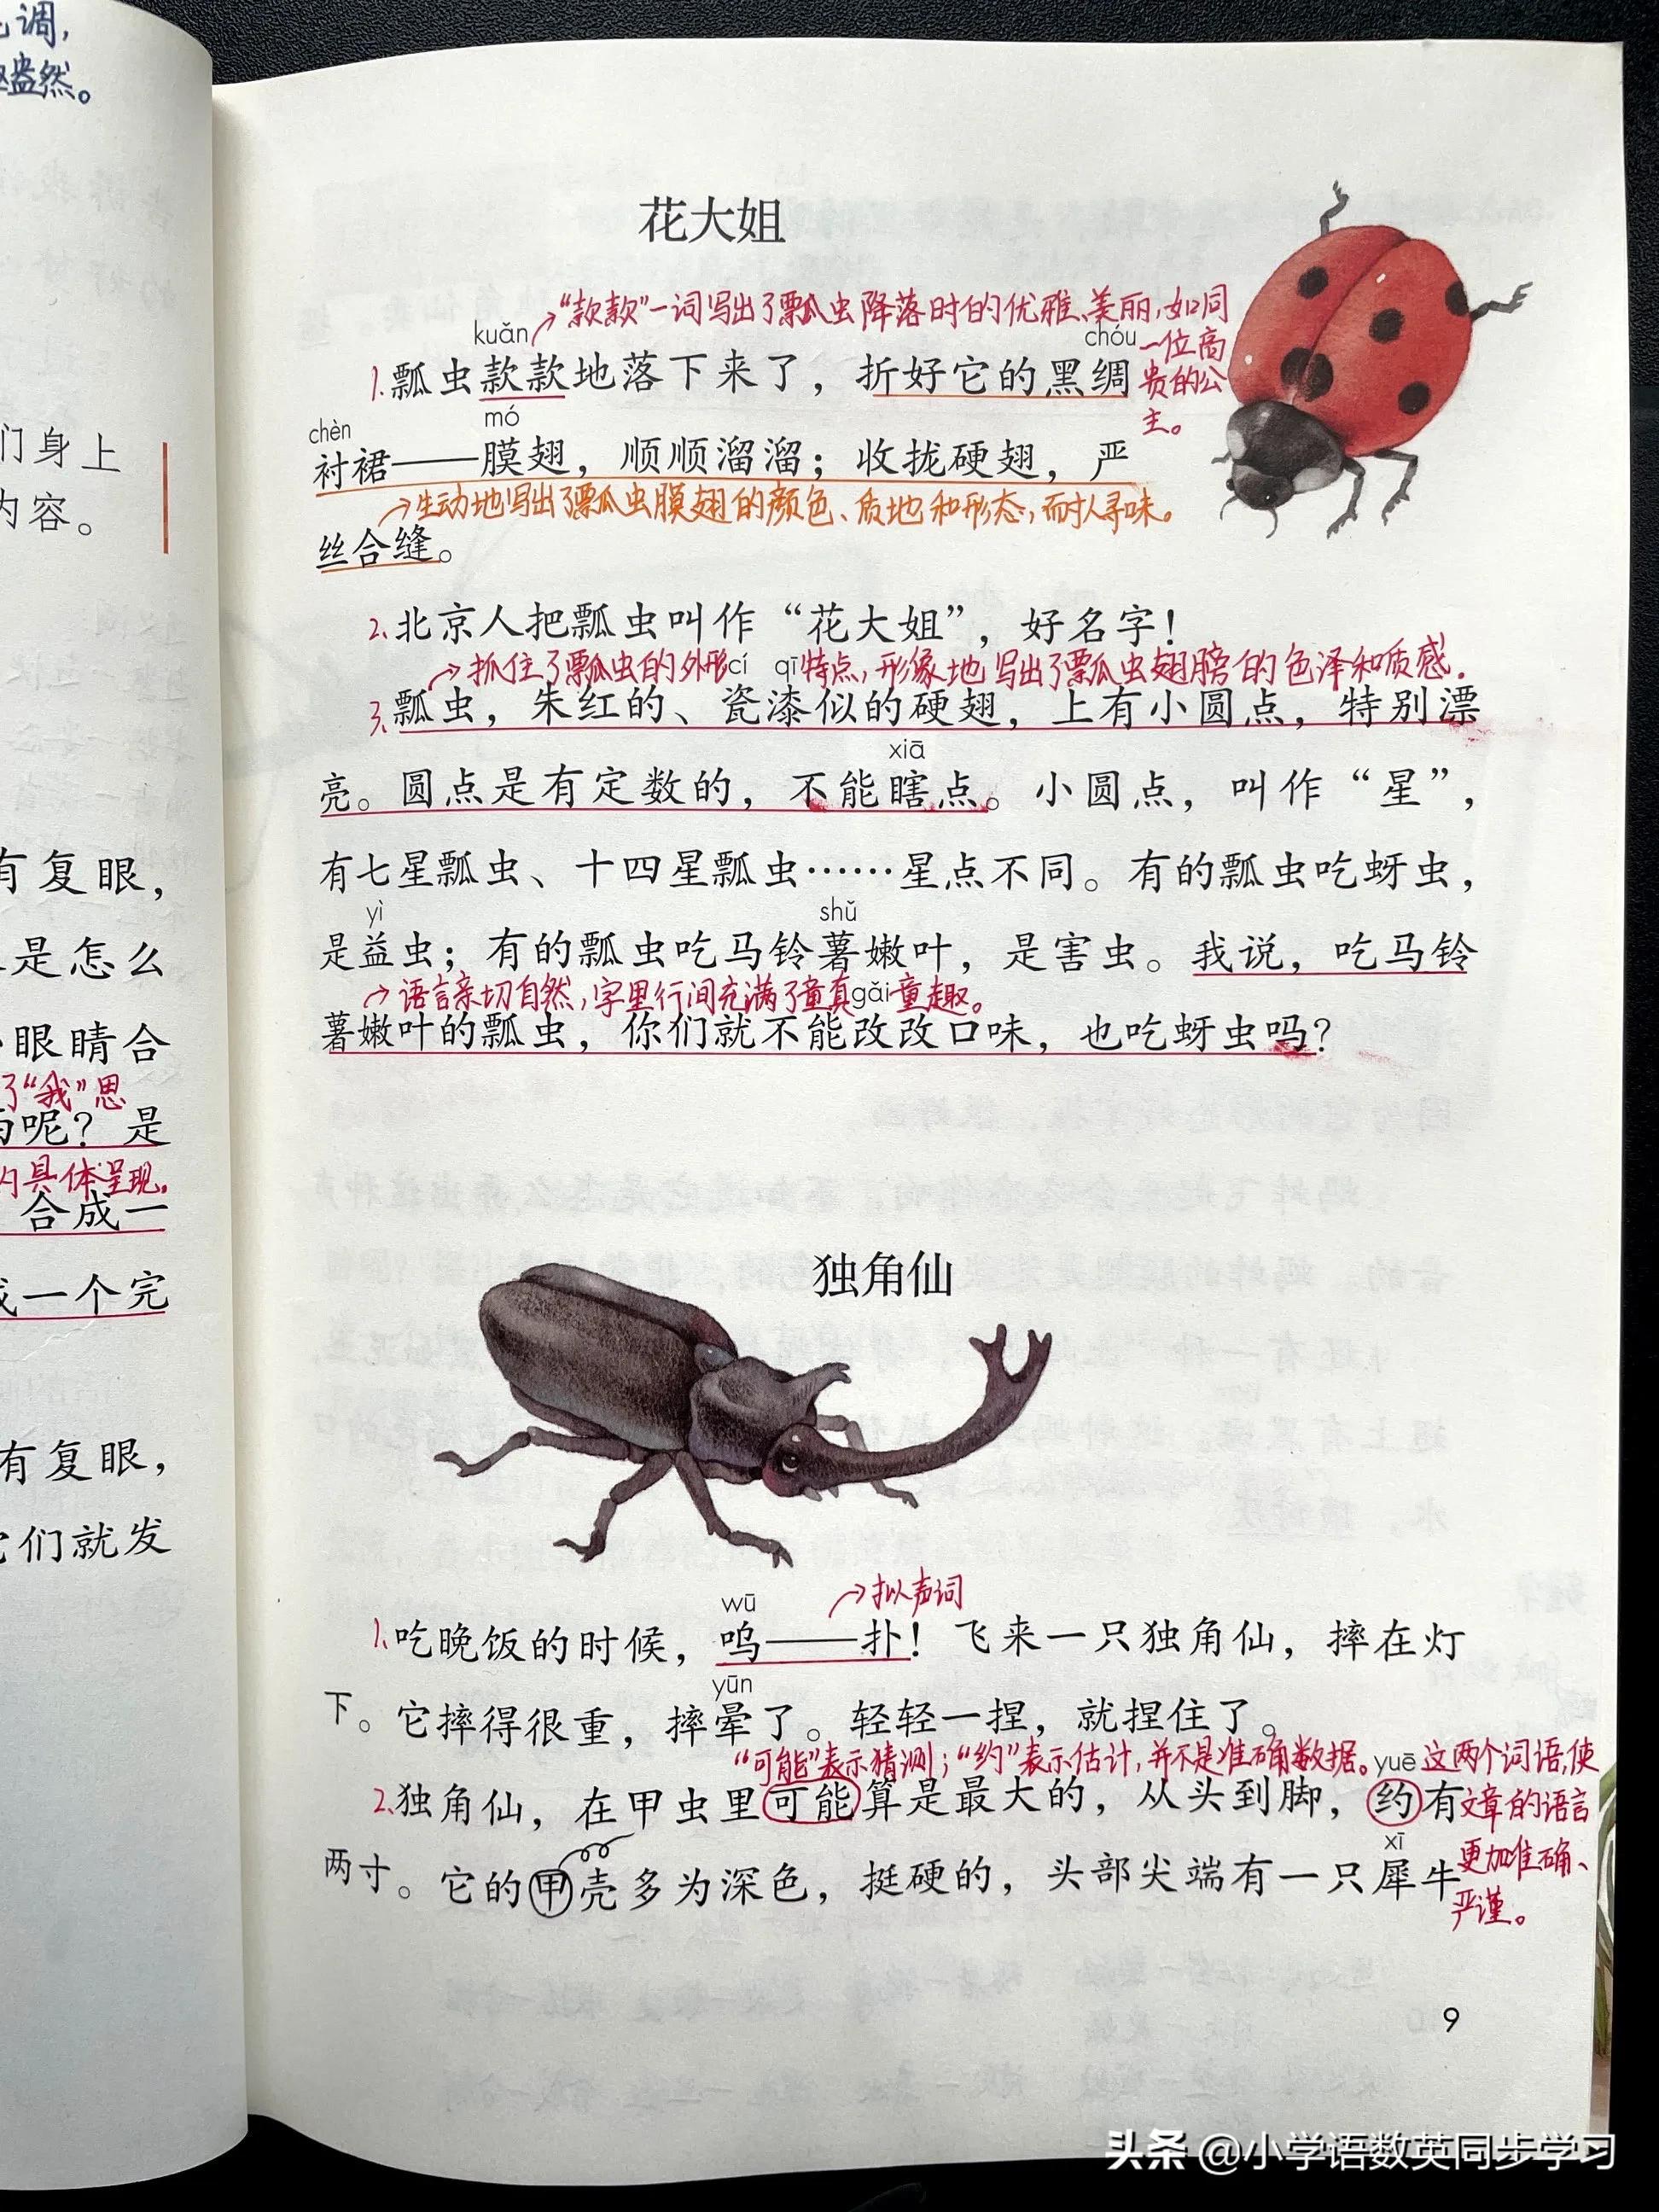 调,
盎然。
们身上
内容。
有复眼,
是怎么
眼睛合
了“我”思
呢? 是
具体呈现。
合成一
一个完
有复眼,
们就发
花大姐
“款款”一词写出了瓢虫降落时的优雅、美丽,如同
一位高
贵的公
主。
kuǎn chóu
1.瓢虫款款地落下来了,折好它的黑绸
chèn mó
衬裙——膜翅,顺顺溜溜;收拢硬翅,严
生动地写出了瓢虫膜翅的颜色、质地和形态,耐人寻味。
丝合缝。
2.北京人把瓢虫叫作“花大姐”,好名字!
抓住了瓢虫的外形特点,形象地写出了瓢虫翅膀的色泽和质感。
cí qī
3.瓢虫,朱红的、瓷漆似的硬翅,上有小圆点,特别漂
xiā
亮。圆点是有定数的,不能瞎点。小圆点,叫作“星”,
有七星瓢虫、十四星瓢虫……星点不同。有的瓢虫吃蚜虫,
yì shǔ
是益虫;有的瓢虫吃马铃薯嫩叶,是害虫。我说,吃马铃
语言亲切自然,字里行间充满了童真童趣。
gǎi
薯嫩叶的瓢虫,你们就不能改改口味,也吃蚜虫吗?
独角仙
拟声词
wū
1.吃晚饭的时候,呜——扑!飞来一只独角仙,摔在灯
yūn
下。它摔得很重,摔晕了。轻轻一捏,就捏住了。
“可能”表示猜测;“约”表示估计,并不是准确数据。这两个词语,使
文章的语言
更加准确、
严谨。
yuē
2.独角仙,在甲虫里可能算是最大的,从头到脚,约有
xī
两寸。它的甲壳多为深色,挺硬的,头部尖端有一只犀牛
9
头条 @小学语数英同步学习